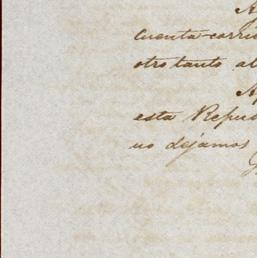 cuenta-corri
otro tanto al
Ap
esta Repu
no dejamos